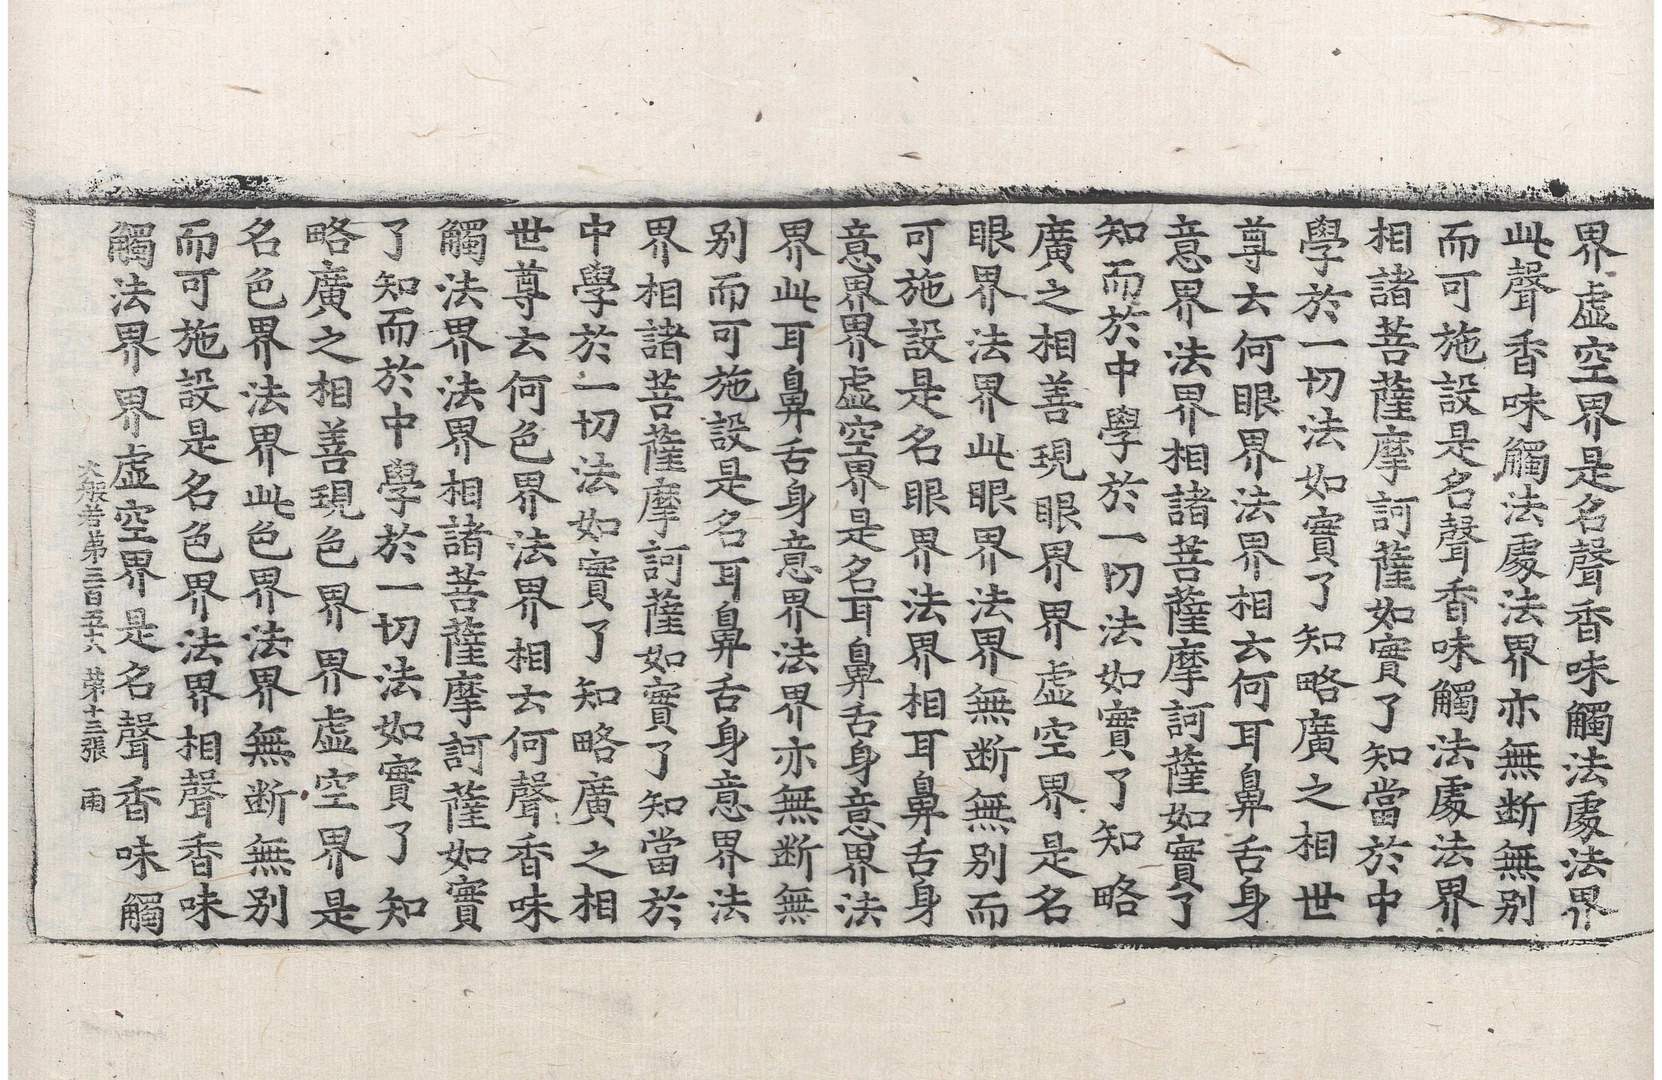 界虛空界是名聲香味觸法處法界
此聲香味觸法處法界亦無断無别
而可施設是名聲香味觸法處法界
相諸菩薩摩訶薩如實了知當於中
學於一切法如實了知略廣之相世
尊云何眼界法界相云何耳鼻舌身
意界法界相諸菩薩摩訶薩如實了
知而於中學於一切法如實了知略
廣之相善現眼界界虛空界是名
眼界法界此眼界法界無断無别而
可施設是名眼界法界相耳鼻舌身
意界界虛空界是名耳鼻舌身意界法
界此耳鼻舌身意界法界亦無断無
别而可施設是名耳鼻舌身意界法
界相諸菩薩摩訶薩如實了知當於
中學於一切法如實了知略廣之相
世尊云何色界法界相云何聲香味
觸法界法界相諸菩薩摩訶薩如實
了知而於中學於一切法如實了知
略廣之相善現色界界虛空界是
名色界法界此色界法界無断無别
而可施設是名色界法界相聲香味
觸法界界虛空界是名聲香味觸
大般若第三百五十六 第十三張 雨